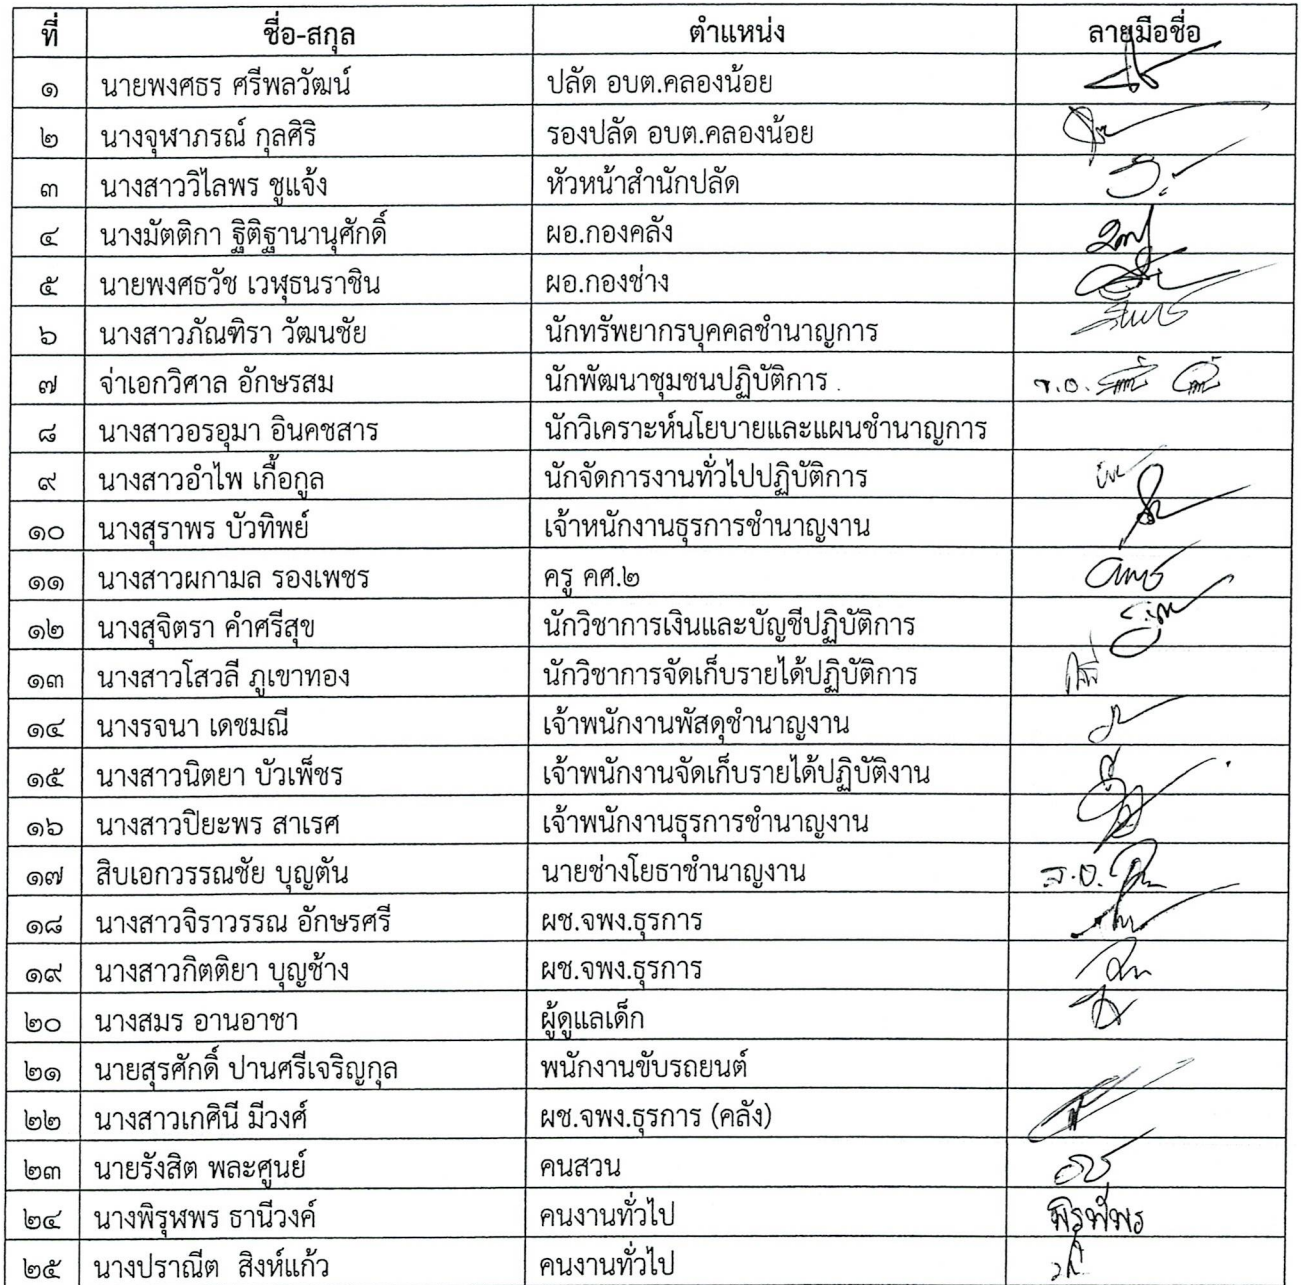 ที่ ชื่อ-สกุล ตำแหน่ง ลายมือชื่อ
๑ นายพงศธร ศรีพลวัฒน์ ปลัด อบต.คลองน้อย
๒ นางจุฬาภรณ์ กุลศิริ รองปลัด อบต.คลองน้อย
๓ นางสาววิไลพร ชูแจ้ง หัวหน้าสำนักปลัด
๔ นางมัตติกา ฐิติฐานานุศักดิ์ ผอ.กองคลัง
๕ นายพงศธวัช เวฬุธนราชิน ผอ.กองช่าง
๖ นางสาวภัณฑิรา วัฒนชัย นักทรัพยากรบุคคลชำนาญการ
๗ จ่าเอกวิศาล อักษรสม นักพัฒนาชุมชนปฏิบัติการ จ.อ.
๘ นางสาวอรอุมา อินคชสาร นักวิเคราะห์นโยบายและแผนชำนาญการ
๙ นางสาวอำไพ เกื้อกูล นักจัดการงานทั่วไปปฏิบัติการ
๑๐ นางสุราพร บัวทิพย์ เจ้าหนักงานธุรการชำนาญงาน
๑๑ นางสาวผกามล รองเพชร ครู คศ.๒
๑๒ นางสุจิตรา คำศรีสุข นักวิชาการเงินและบัญชีปฏิบัติการ
๑๓ นางสาวโสวลี ภูเขาทอง นักวิชาการจัดเก็บรายได้ปฏิบัติการ
๑๔ นางรจนา เดชมณี เจ้าพนักงานพัสดุชำนาญงาน
๑๕ นางสาวนิตยา บัวเพ็ชร เจ้าพนักงานจัดเก็บรายได้ปฏิบัติงาน
๑๖ นางสาวปิยะพร สาเรศ เจ้าพนักงานธุรการชำนาญงาน
๑๗ สิบเอกวรรณชัย บุญตัน นายช่างโยธาชำนาญงาน ส.อ.
๑๘ นางสาวจิราวรรณ อักษรศรี ผช.จพง.ธุรการ
๑๙ นางสาวกิตติยา บุญช้าง ผช.จพง.ธุรการ
๒๐ นางสมร อานอาชา ผู้ดูแลเด็ก
๒๑ นายสุรศักดิ์ ปานศรีเจริญกุล พนักงานขับรถยนต์
๒๒ นางสาวเกศินี มีวงศ์ ผช.จพง.ธุรการ (คลัง)
๒๓ นายรังสิต พละศูนย์ คนสวน
๒๔ นางพิรุฬพร ธานีวงค์ คนงานทั่วไป
๒๕ นางปราณีต สิงห์แก้ว คนงานทั่วไป